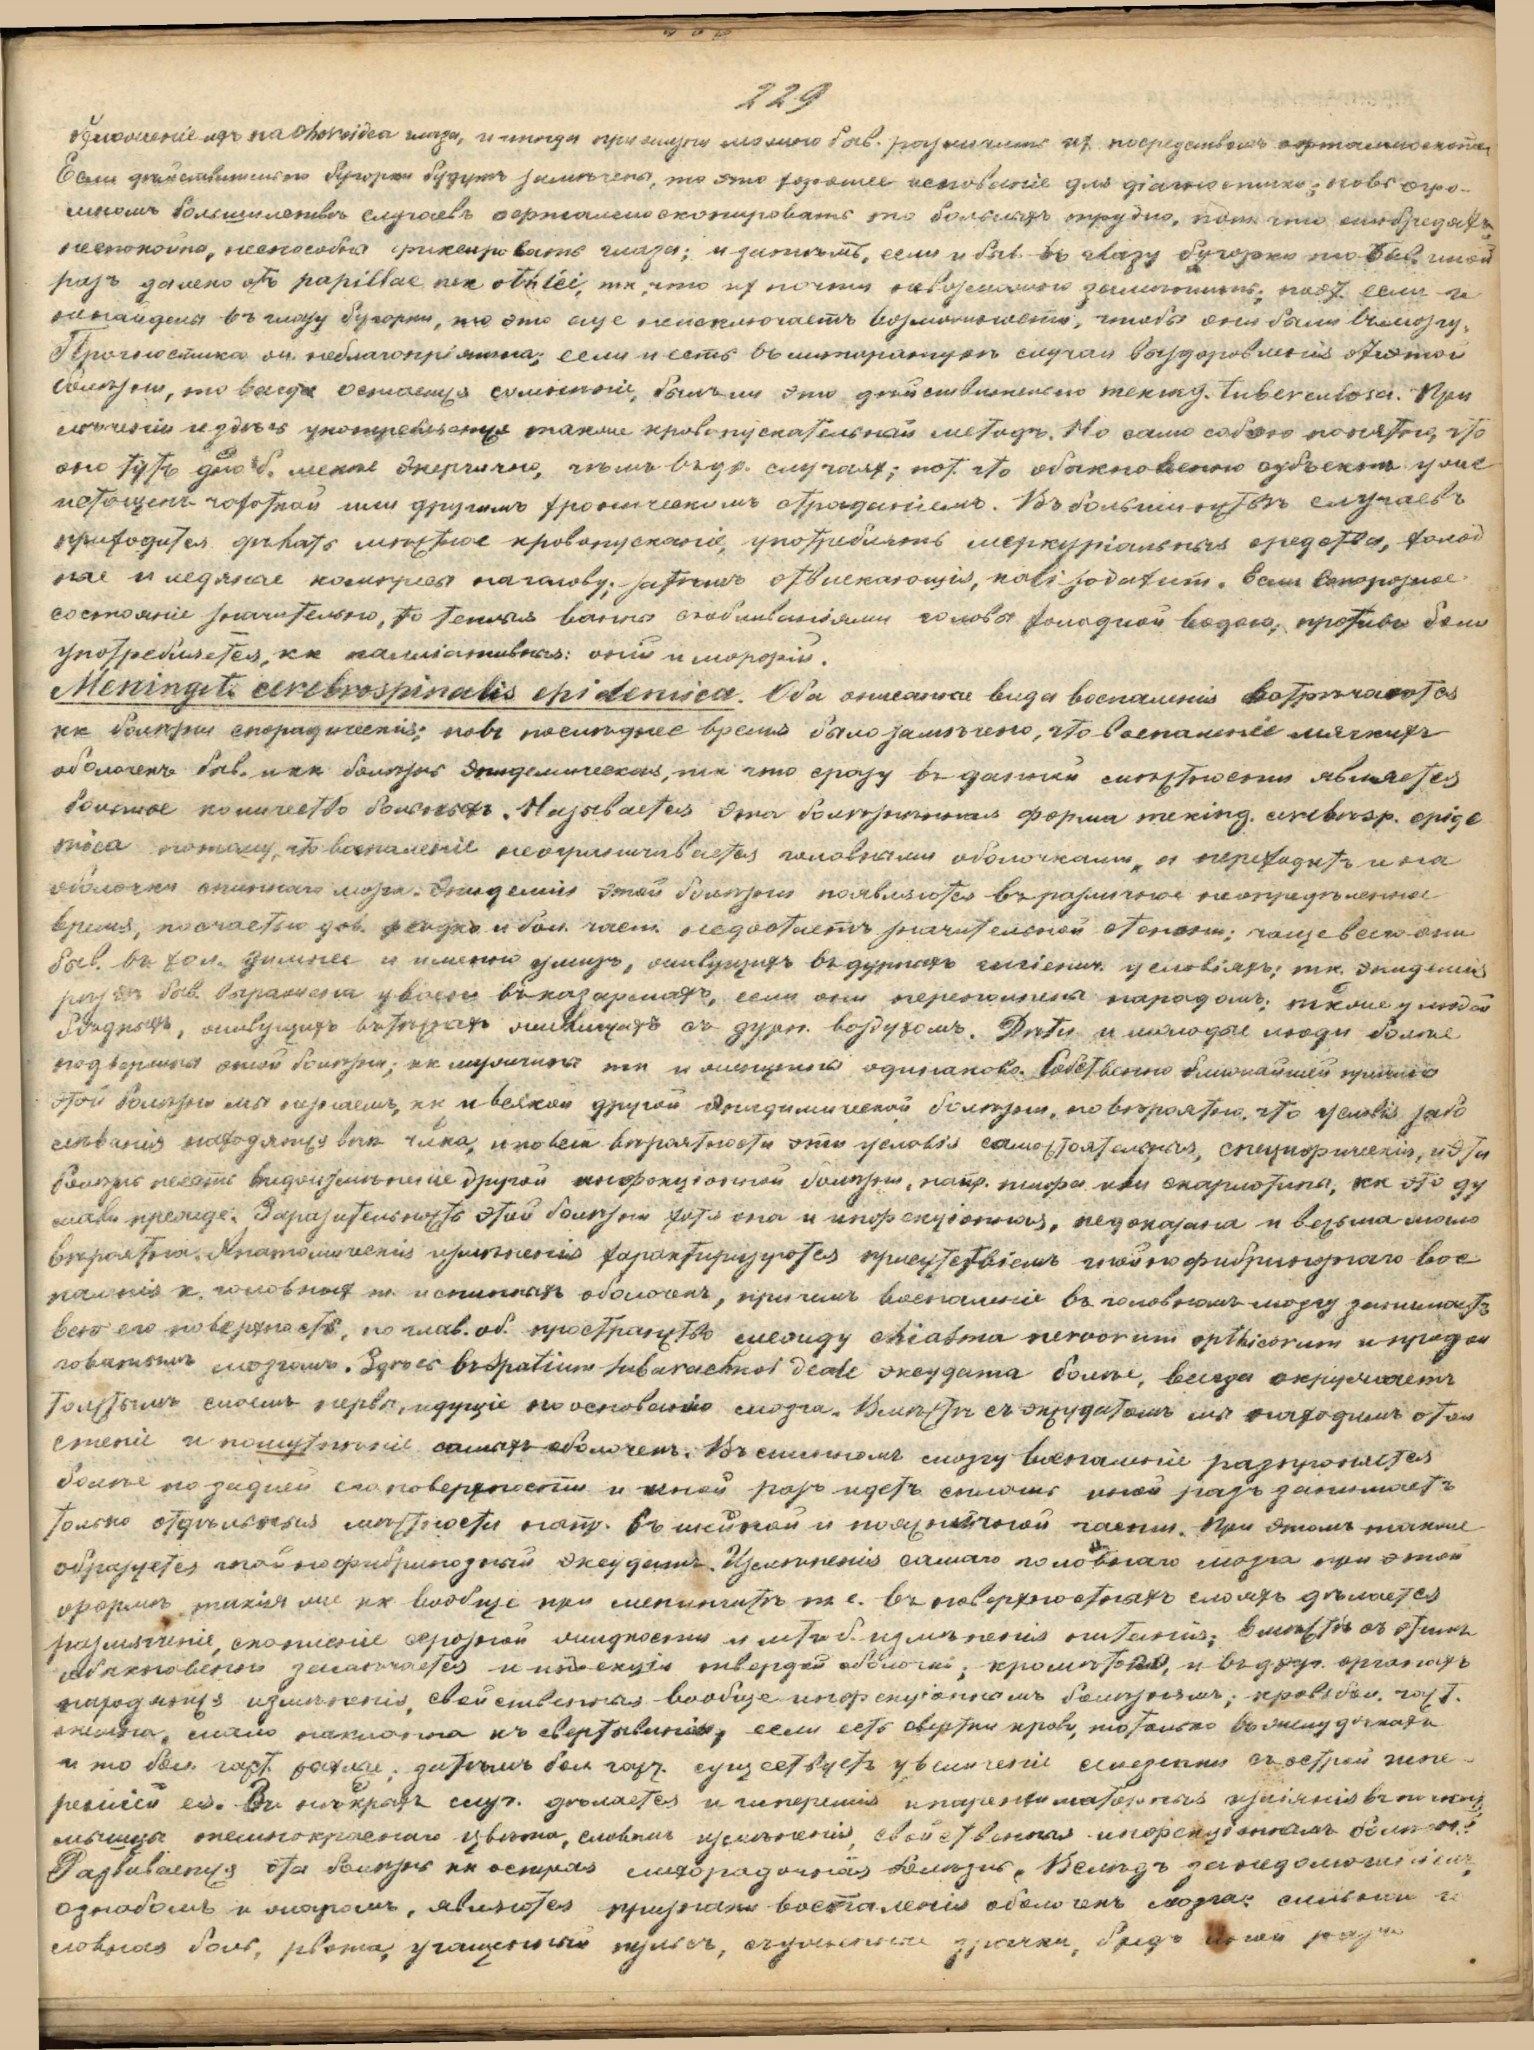 229
отношеніе идъ на choroidea глаза, и иногда при жизни можно быв. различить их посредствомъ офталмоскопа.
Если дѣйствительно бугорки будутъ замѣчены, то это хорошее основаніе для діагностики; но въ огро-
мномъ большинствѣ случаевъ офталмоскопировать то больныхъ трудно, пот. что они бредятъ,
неспокойно, неспособны фиксировать глаза; и затѣмъ, если и был. въ глазу бугорки то был. иной
разъ далеко отъ papillae nek othici, тк. что их почти невозможно замѣтить; поэт. если и
ненайдены въ глазу бугорки, то это еще неисключаетъ возможности, чтобы они были въ мозгу.
Прогностика оч. неблагопріятна; если и есть въ литературѣ случаи выздоровленія отъ этой
болѣзни, то всегда остается сомнѣніе, былъ ли это дѣйствительно mening. tuberculosa. При
лѣченіи и здѣсь употребляется также кровопускательный методъ. Но само собою понятно, что
оно тутъ д. б. менѣе энергично, чѣмъ въ др. случаях; пот. что обыкновенно субъектъ уже
истощенъ чахоткой или другимъ хроническимъ страданіемъ. Въ большинствѣ случаевъ
приходится дѣлать мѣстное кровопусканіе, употреблять меркуріальныя средства, холод
ные и ледяные компресы на голову; затѣмъ отвлекающія, kali jodatum. Если сопорозное
состояніе значительно, то теплыя ванны съ обливаніями головы холодной водою; противъ боли
употребляется, кк палліативныя: опій и морфій.
Meningit. cerebrospinalis epidemica. Оба описанные вида воспаленія встрѣчаются
кк болѣзни спорадическія; но въ послѣднее время было замѣчено, что воспаленіе мягкихъ
оболочекъ быв. и кк болѣзнь эпидемическая, тк что сразу въ данной мѣстности является
большое количество больныхъ. Называется эта болѣзненная форма mening. cerebrosp. epide
mica потому, что воспаленіе неограничивается головными оболочками, а переходитъ и на
оболочки спиннаго мозга. Эпидеміи этой болѣзни появляются въ различное неопредѣленное
время, по счастью дов. рѣдко и бол. част. недостаетъ значительной степени; чаще всего они
быв. въ хол. зимнее и именно у лицъ, живущихъ въ дурныхъ гигіенич. условіяхъ; тк. эпидемія
разъ быв. выражена у воен. въ казармахъ, если они переполнены народомъ; также у людей
бѣдныхъ, живущихъ въ тѣсныхъ жилищахъ съ дурн. воздухомъ. Дѣти и молодые люди болѣе
подвержены этой болѣзни; кк мужчины тк и женщины одинаково. Собственно ближайшей причины
этой болѣзни мы незнаемъ, кк и всякой другой эпидимической болѣзни, но вѣроятно, что условія забо
лѣванія находятся внѣ члка, и по всей вѣроятности эти условія самостоятельныя, специфическія, и эта
болѣзнь несоть видоизмѣненіе другой инфекціонной болѣзни, напр. тифа или скарлатины, кк это ду
мали прежде. Заразительность этой болѣзни хотя она и инфекціонная, недоказана и весьма мало
вѣроятна. Анатомическія измѣненія характеризуются присутствіемъ гнойнофибринознаго вос
паленія к. головных т. и спинныхъ оболочекъ, причемъ воспаленіе въ головномъ мозгу занимаетъ
всю его поверхность, но глав. об. пространство между chiasma nervorum opthicorum и продол
говатымъ мозгомъ. Здѣсь въ spatium subarachnoideale эксудата болѣе, всегда окружаетъ
толстымъ слоемъ нервы, идущіе по основанію мозга. Вмѣстѣ съ эксудатомъ мы находимъ утол
щеніе и помутнѣніе самыхъ оболочекъ. Въ спинномъ мозгу воспаленіе распространяется
болѣе по задней его поверхности и иной разъ идетъ сплошь иной разъ занимаетъ
только отдѣльныя мѣстности напр. въ шейной и поясничной части. При этомъ также
образуется гнойнофибринозный эксудатъ. Измѣненія самаго головнаго мозга при этой
формѣ такія же кк вообще при менингитѣ т. е. въ поверхностныхъ слояхъ дѣлается
размягченіе, скопленіе серозной жидкости и мт. б. измѣненія питанія; вмѣстѣ съ этимъ
обыкновенно замѣчается и инъекція твердой оболочки; кромѣ того, и въ друг. органахъ
находятся измѣненія, свойственныя вообще инфекціоннымъ болѣзнямъ; кровь бол. част.
жидка, мало наклонна къ свертыванію, если есть свертки крови, то только въ желудочкахъ
и то бол. част. рыхлые; затѣмъ бол. част. существуетъ увеличеніе селезенки съ острой гипе-
реміей ея. Въ нѣкрыхъ случ. дѣлается и гиперемія и паренхиматозныя измѣненія въ почкахъ,
мышцы темнокраснаго цвѣта, словомъ измѣненія, свойственныя инфекціоннымъ болѣзн.
Развивается эта болѣзнь кк острая лихорадочная болѣзнь. Вслѣдъ за недомоганіемъ,
ознобомъ и жаромъ, являются признаки воспаленія оболочекъ мозга: сильная го
ловная боль, рвота, учащенный пульсъ, суженные зрачки, бредъ иной разъ